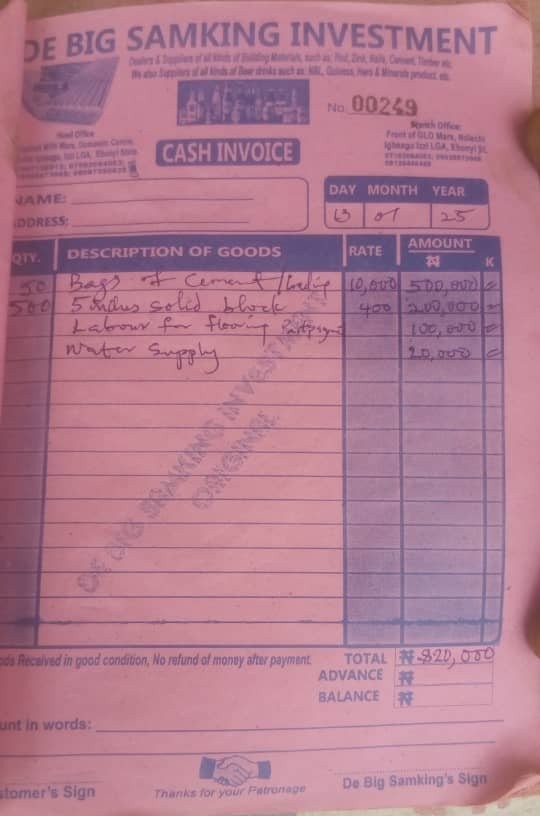 DE BIG SAMKING INVESTMENT
Dealers & Suppliers of all kinds of Building Materials, such as: Rod, Zink, Nails, Cement, Timber etc.
We also Suppliers of all kinds of Beer drinks such as: NBL, Guiness, Hero & Minerals product, etc.
No. 00249
Head Office
CASH INVOICE
Branch Office:
Front of GLO Mars, Ndiechi
Igbeagu Izzi LGA, Ebonyi
NAME:
DDRESS:
DAY MONTH YEAR
13 01 25
QTY. DESCRIPTION OF GOODS RATE AMOUNT
₦ K
50 Bags of Cement / 10,000 500,000
500 5 solid block 400 200,000
Labour for flooring 100,000
Water Supply 20,000
DE BIG SAMKING INVESTMENT
ORIGINAL
ods Received in good condition, No refund of money after payment. TOTAL ₦ 820,000
ADVANCE ₦
BALANCE ₦
unt in words:
stomer's Sign
Thanks for your Patronage
De Big Samking's Sign